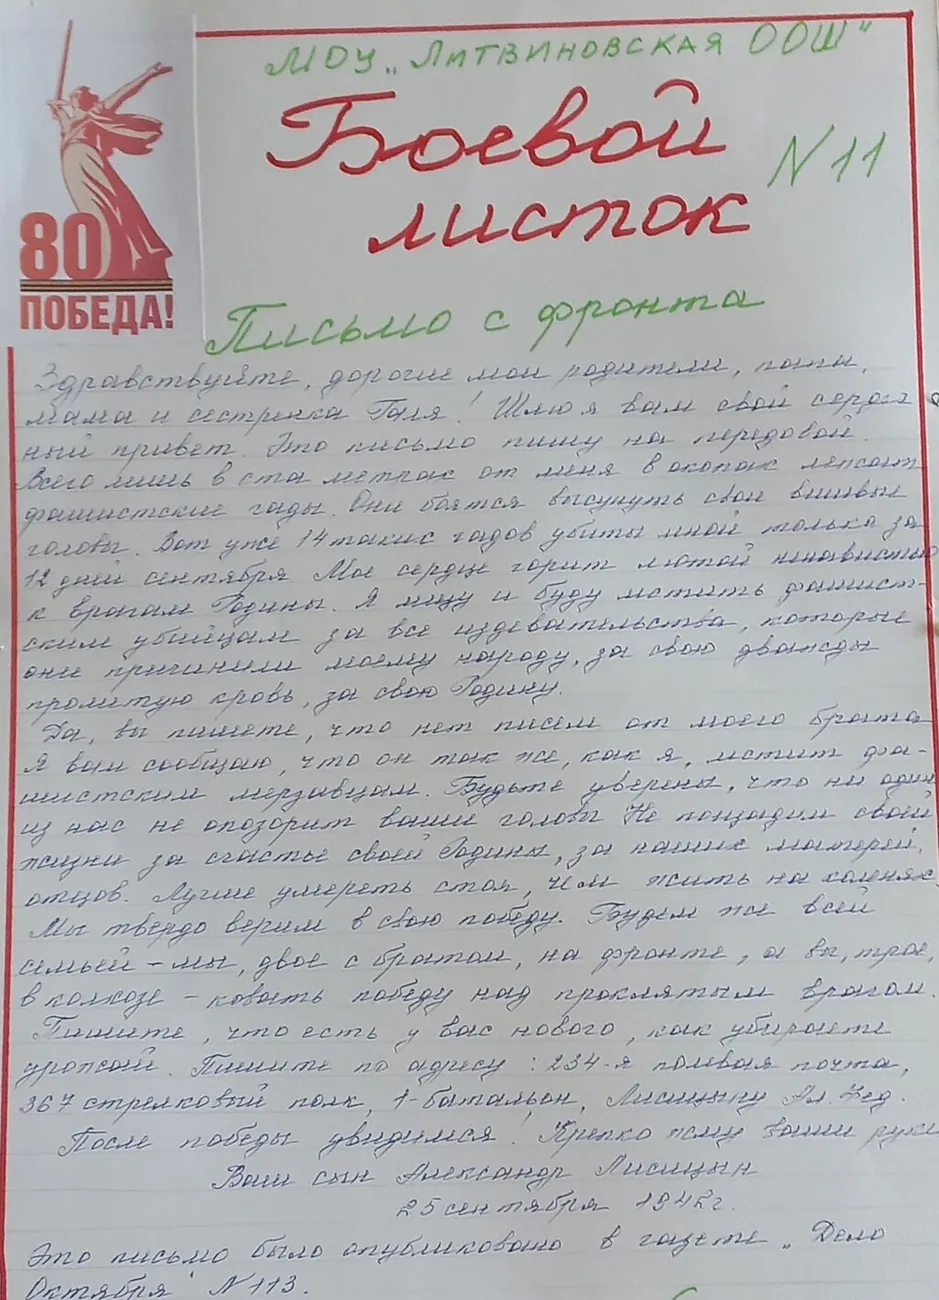 МОУ „Литвиновская ООШ"
Боевой
листок
N 11
80
ПОБЕДА!
Письмо с фронта
Здравствуйте, дорогие мои родители, папа,
мама и сестренка Галя! Шлю я вам свой сердеч
ный привет. Это письмо пишу на передовой.
Всего лишь в ста метрах от меня в окопах лежат
фашистские гады. Они боятся высунуть свои вшивые
головы. Вот уже 14 таких гадов убиты мной только за
12 дней сентября. Мое сердце горит лютой ненавистью
к врагам Родины. Я мщу и буду мстить фашист-
ским убийцам за все издевательства, которые
они причинили моему народу, за свою дважды
пролитую кровь, за свою Родину.
Да, вы пишете, что нет писем от моего брата
Я вам сообщаю, что он так же, как я, мстит фа-
шистским мерзавцам. Будьте уверены, что ни один
из нас не опозорит ваши головы. Не пощадим своей
жизни за счастье своей Родины, за наших матерей,
отцов. Лучше умереть стоя, чем жить на коленях.
Мы твердо верим в свою победу. Будем же всей
семьей – мы, двое с братом, на фронте, а вы, трое,
в колхозе – ковать победу над проклятым врагом.
Пишите, что есть у вас нового, как убираете
урожай. Пишите по адресу: 234-я полевая почта,
367 стрелковый полк, 1-батальон, Лисицыну Ал. Фед.
После победы увидимся! Крепко жму ваши руки
Ваш сын Александр Лисицын
25 сентября 1942г.
Это письмо было опубликовано в газете „Дело
Октября" N 113.